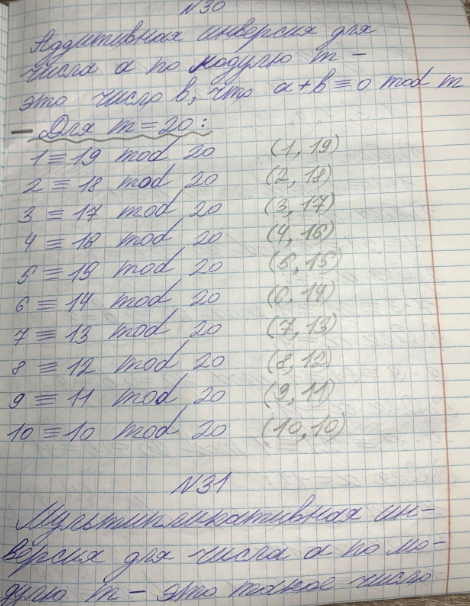 N30
Аддитивная инверсия для
числа a по модулю m -
это число b, что a+b ≡ 0 mod m
Для m = 20:
1 ≡ 19 mod 20 (1, 19)
2 ≡ 18 mod 20 (2, 18)
3 ≡ 17 mod 20 (3, 17)
4 ≡ 16 mod 20 (4, 16)
5 ≡ 15 mod 20 (5, 15)
6 ≡ 14 mod 20 (6, 14)
7 ≡ 13 mod 20 (7, 13)
8 ≡ 12 mod 20 (8, 12)
9 ≡ 11 mod 20 (9, 11)
10 ≡ 10 mod 20 (10, 10)
N31
Мультипликативная ин-
версия для числа a по мо-
дулю m - это такое число